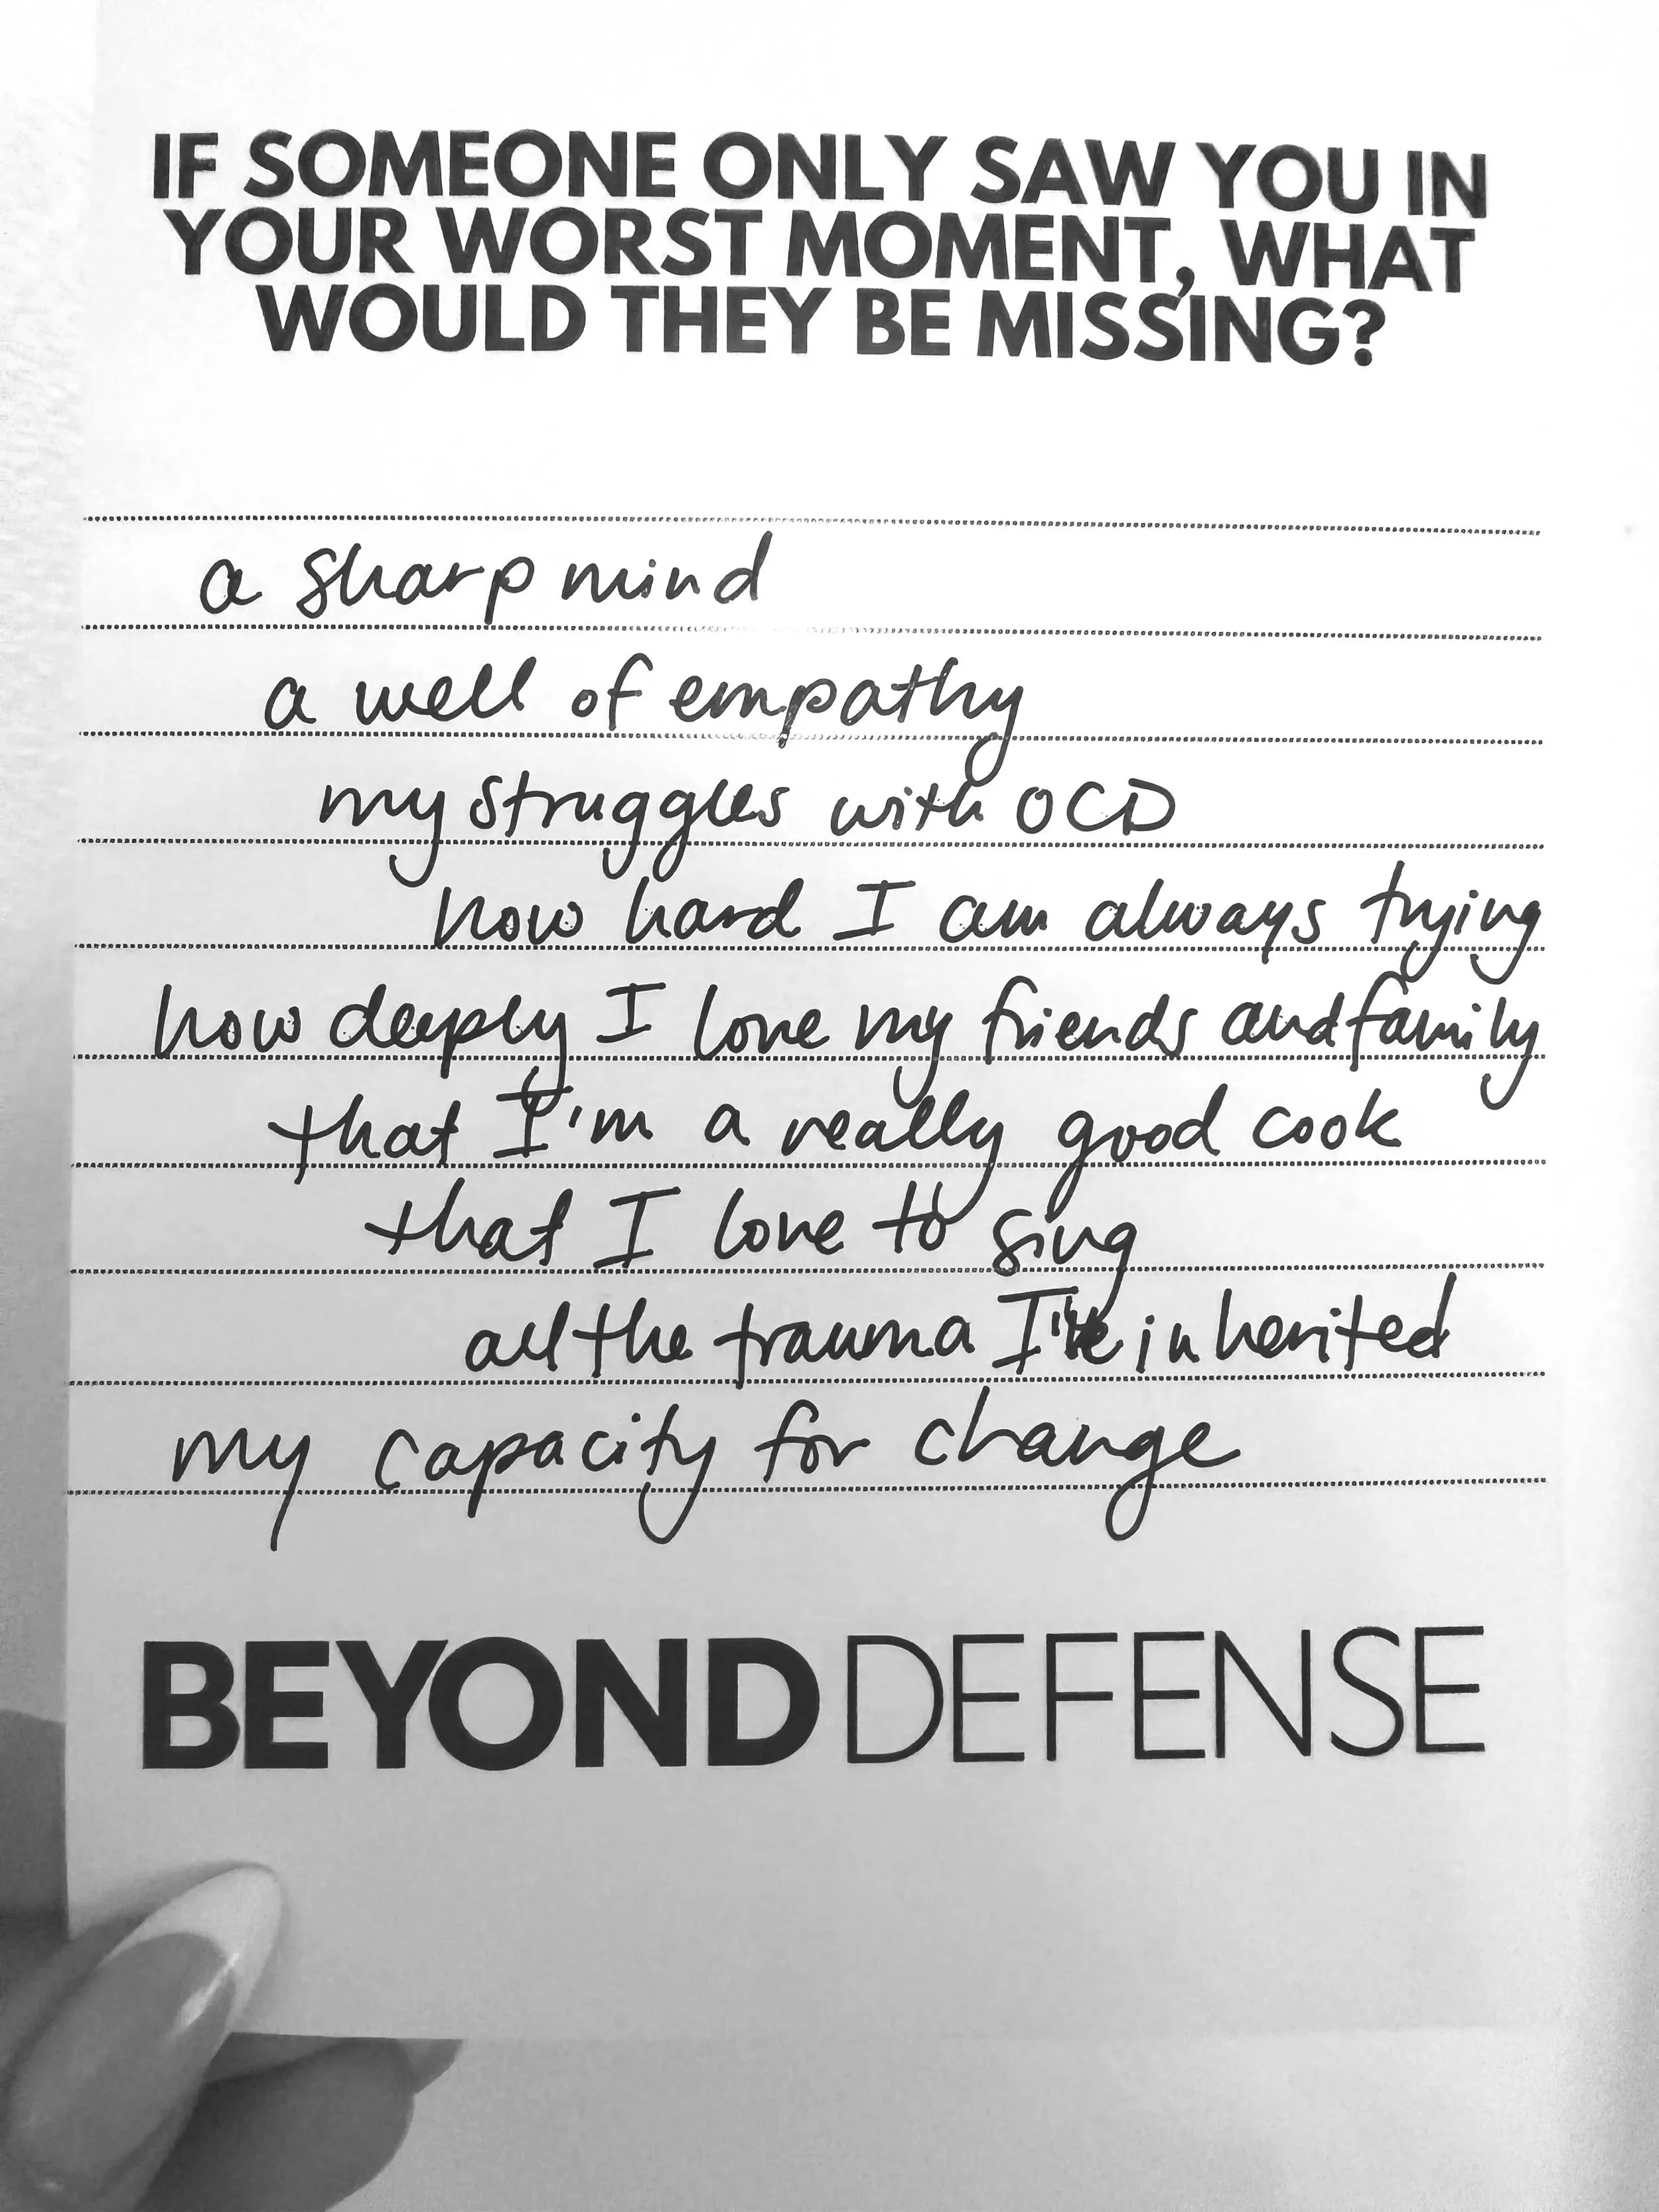 IF SOMEONE ONLY SAW YOU IN
YOUR WORST MOMENT, WHAT
WOULD THEY BE MISSING?
a sharp mind
a well of empathy
my struggles with OCD
how hard I am always trying
how deeply I love my friends and family
that I'm a really good cook
that I love to sing
all the trauma I've inherited
my capacity for change
BEYOND DEFENSE